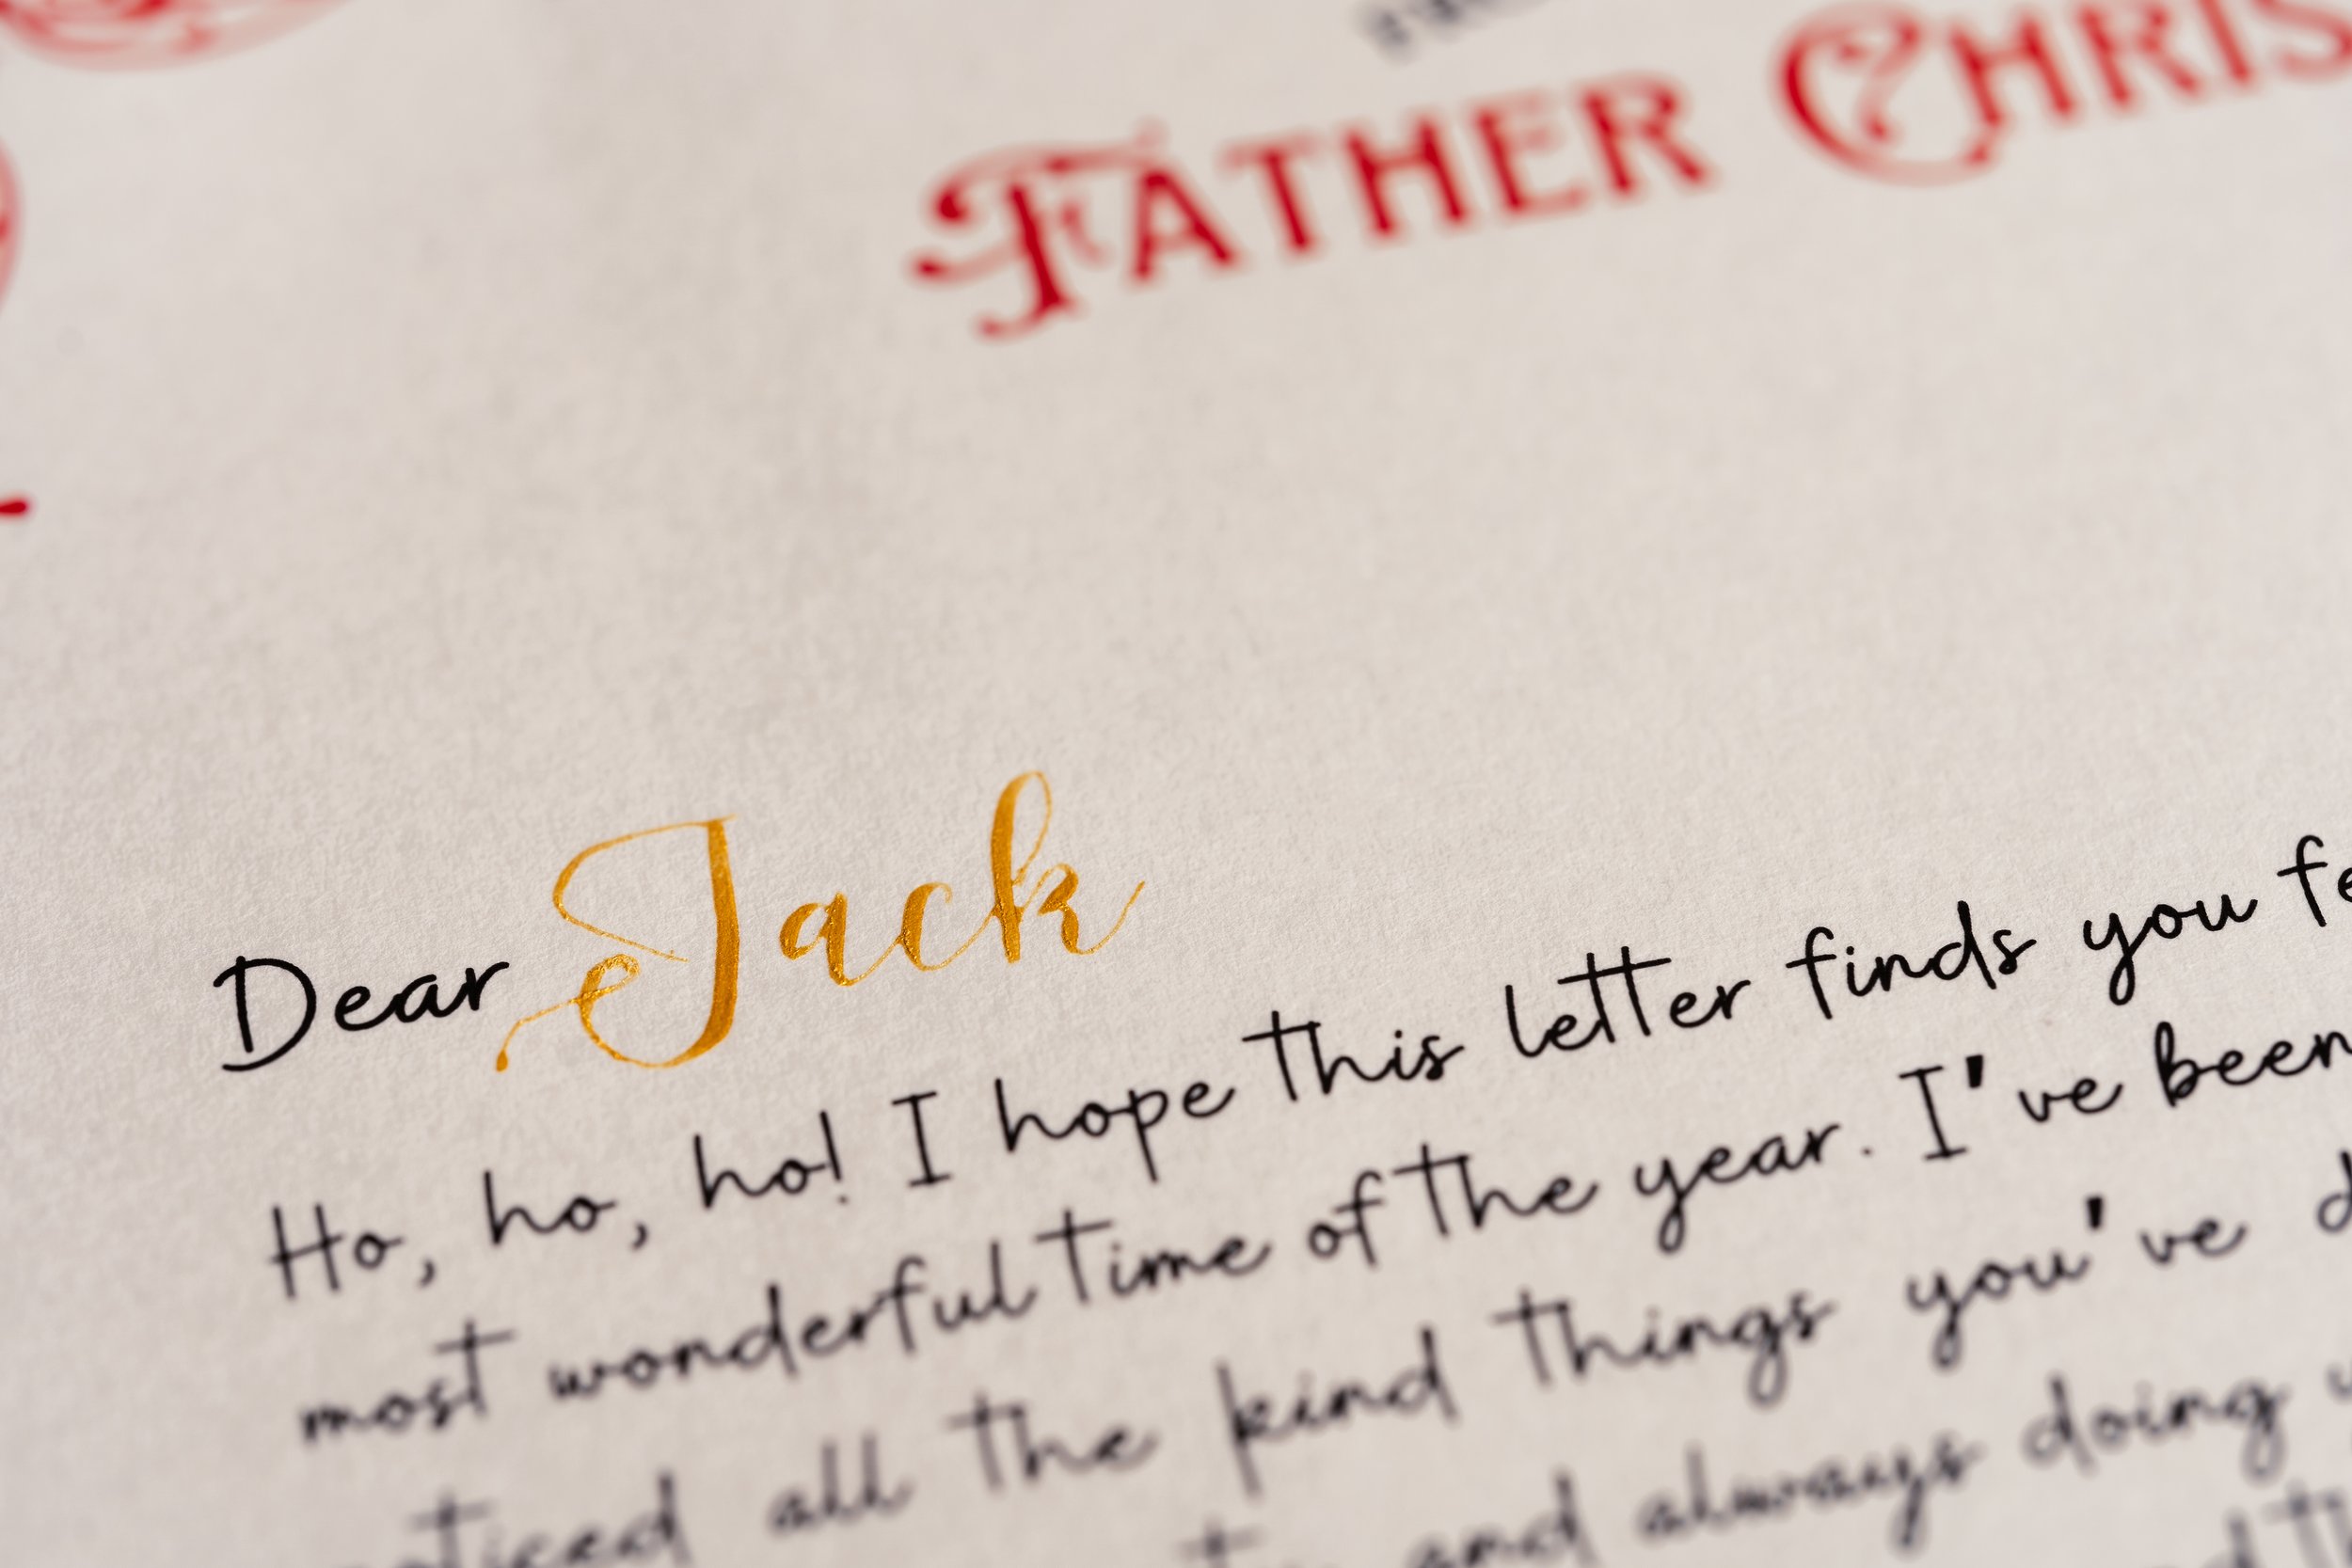 FATHER CHRIS
Dear Jack
Ho, ho, ho! I hope this letter finds you fe
most wonderful time of the year. I've been
noticed all the kind things you've d
and always doing